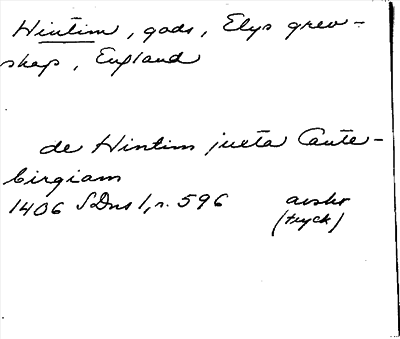 Hintim, gods, Elys grev-
skap, England
de Hintim juxta Cante-
birgiam
1406 SDns 1, n. 596 avskr
(tryck)